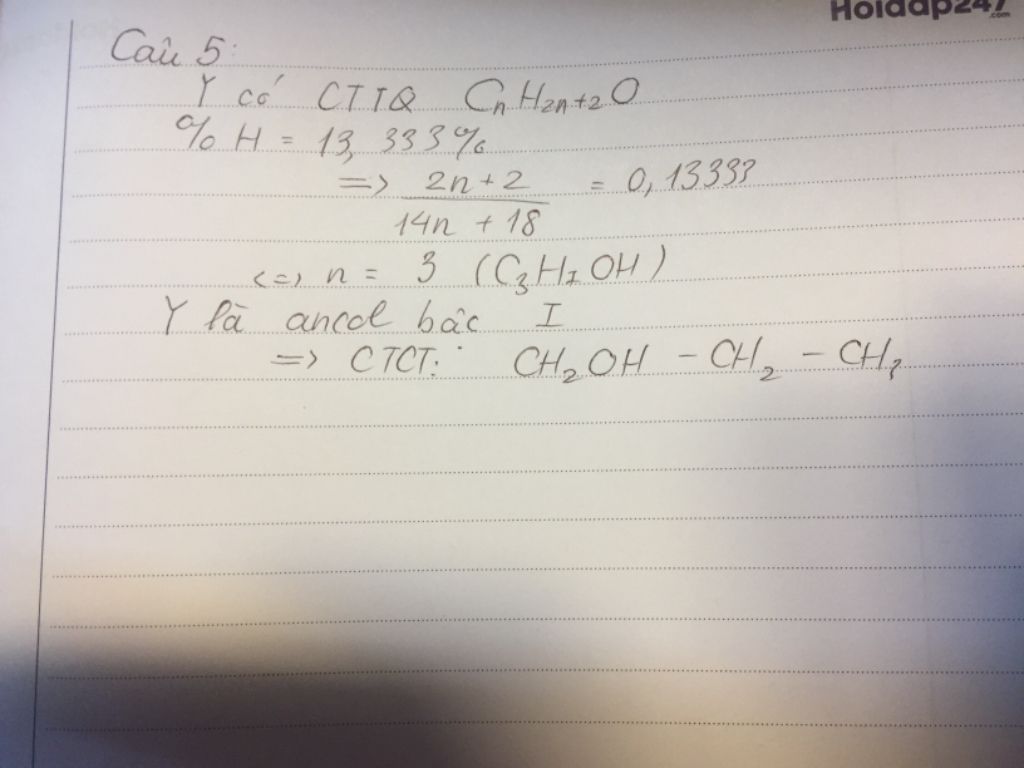 Hoidap247
.com
Câu 5:
Y có CTTQ CnH2n+2O
% H = 13,333%
=> 2n+2 / 14n + 18 = 0,1333?
<=> n = 3 (C3H7OH)
Y là ancol bậc I
=> CTCT: CH2OH - CH2 - CH3